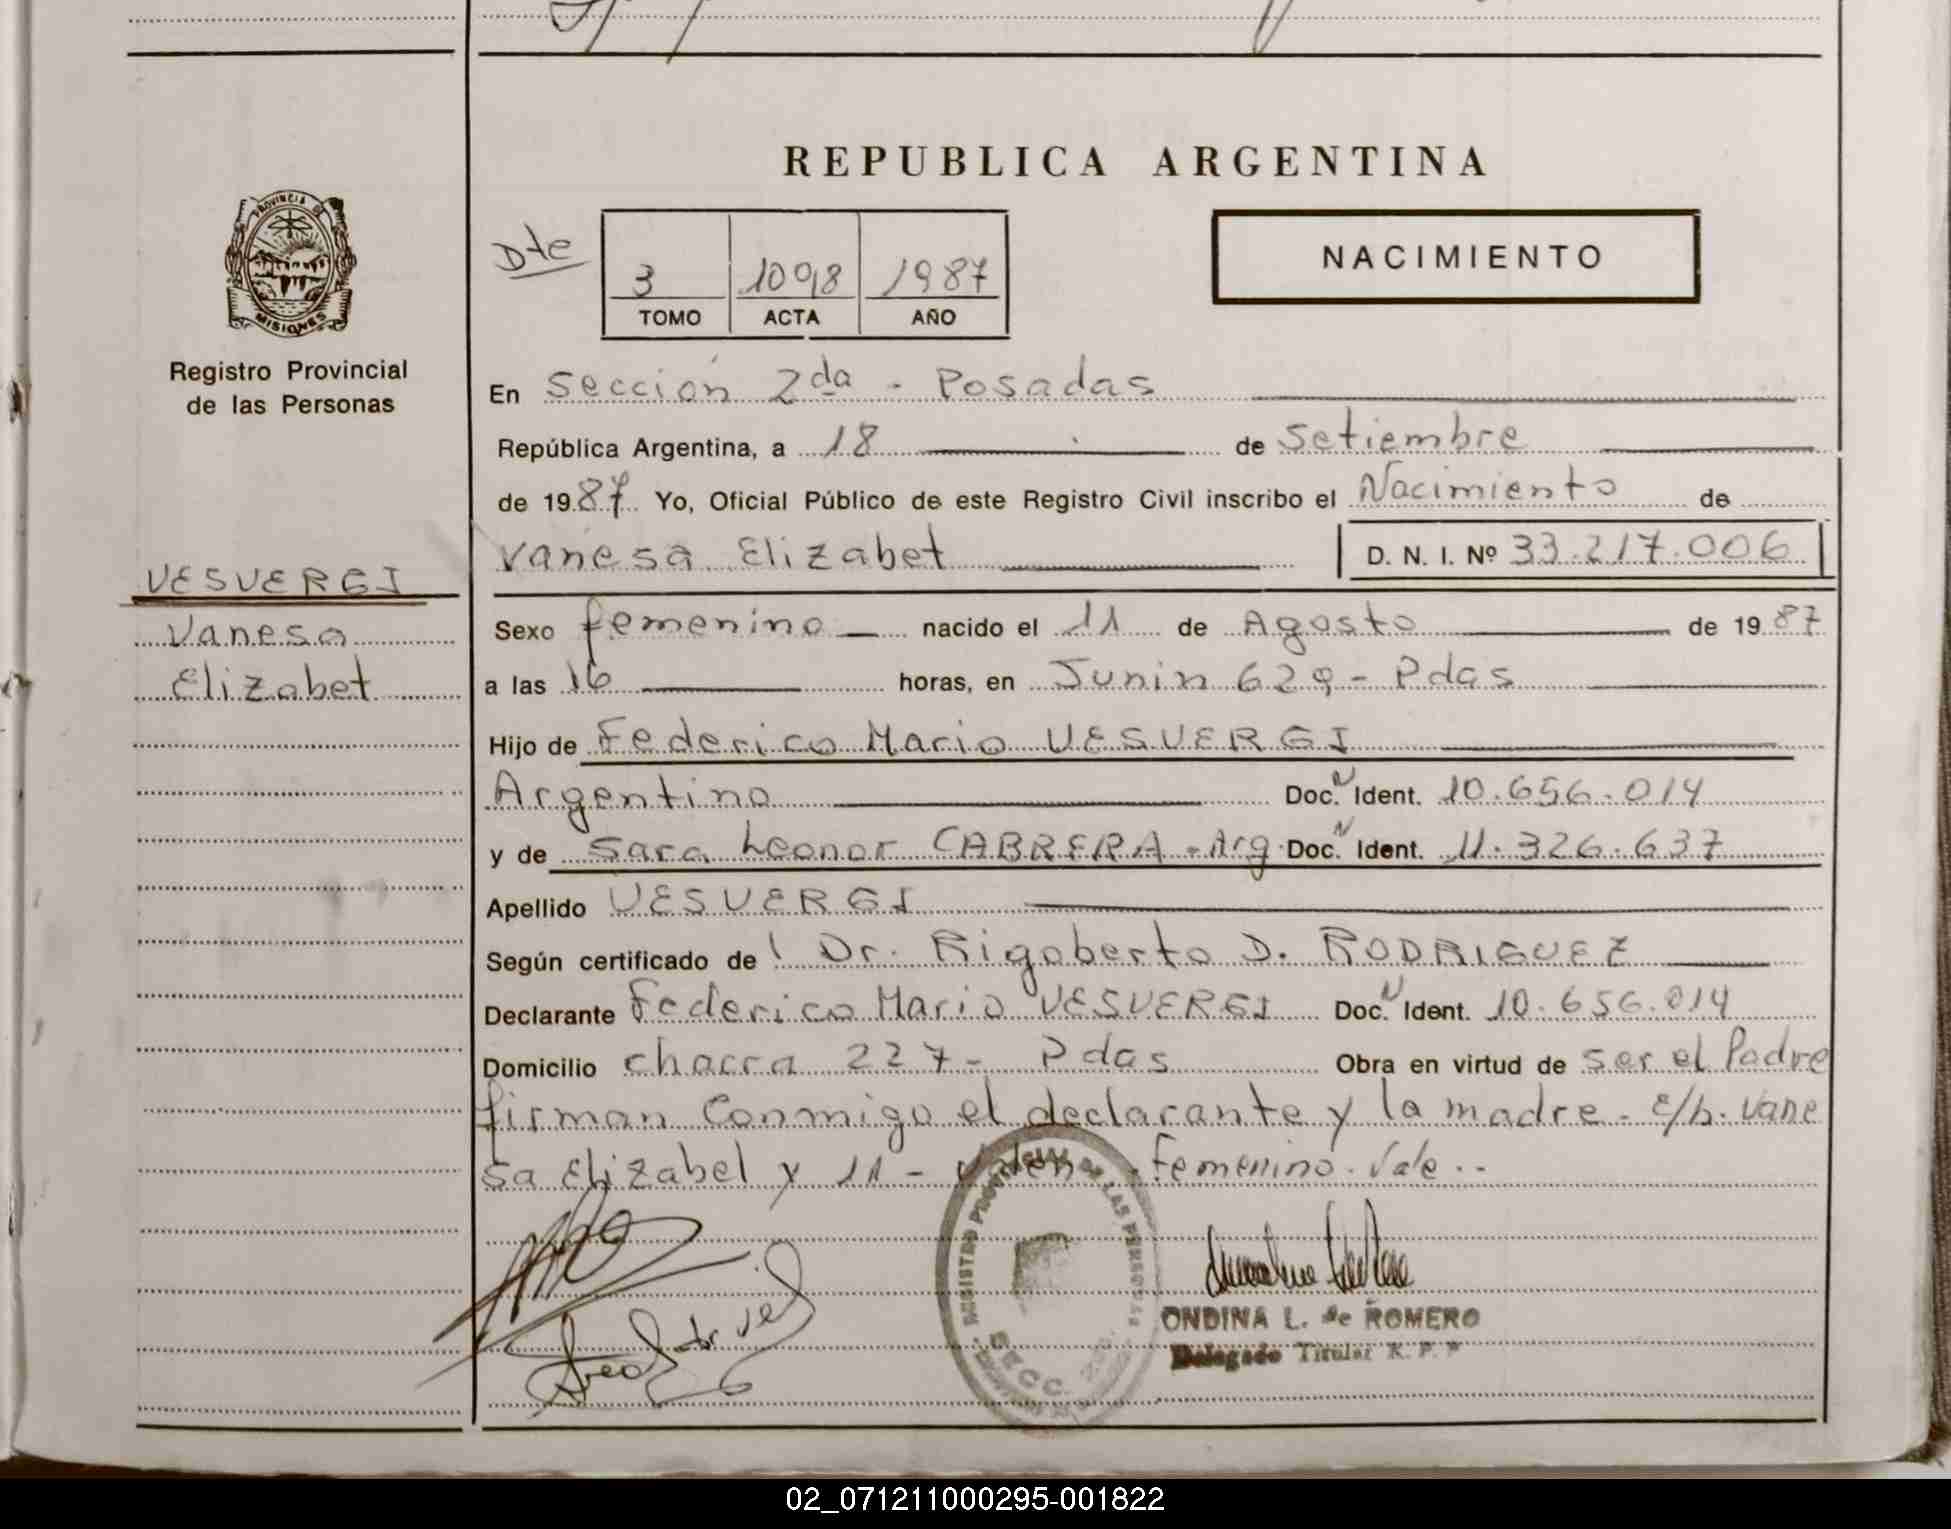 REPUBLICA ARGENTINA
PROVINCIA
MISIONES
Registro Provincial
de las Personas
Dte
3 1098 1987
TOMO ACTA AÑO
NACIMIENTO
En Sección 2da - Posadas
República Argentina, a 18 de Setiembre
de 1987 Yo, Oficial Público de este Registro Civil inscribo el Nacimiento de
Vanesa Elizabet D. N. I. Nº 33.217.006
VESVERGI
Vanesa
Elizabet
Sexo femenino nacido el 11 de Agosto de 1987
a las 16 horas, en Junin 629 - Pdas
Hijo de Federico Mario VESVERGI
Argentino Doc. N Ident. 10.656.014
y de Sara Leonor CABRERA - Arg. Doc. N Ident. 11.326.637
Apellido VESVERGI
Según certificado de Dr. Rigoberto D. RODRIGUEZ
Declarante Federico Mario VESVERGI Doc. N Ident. 10.656.014
Domicilio chacra 227 - Pdas Obra en virtud de ser el Padre
firman conmigo el declarante y la madre - E/b. Vane
sa Elizabel y 11 - Valen - Femenino. Vale..
REGISTRO PROVINCIAL DE LAS PERSONAS
SECC. 2da.
ONDINA L. de ROMERO
Delegado Titular R. P. P
02_071211000295-001822